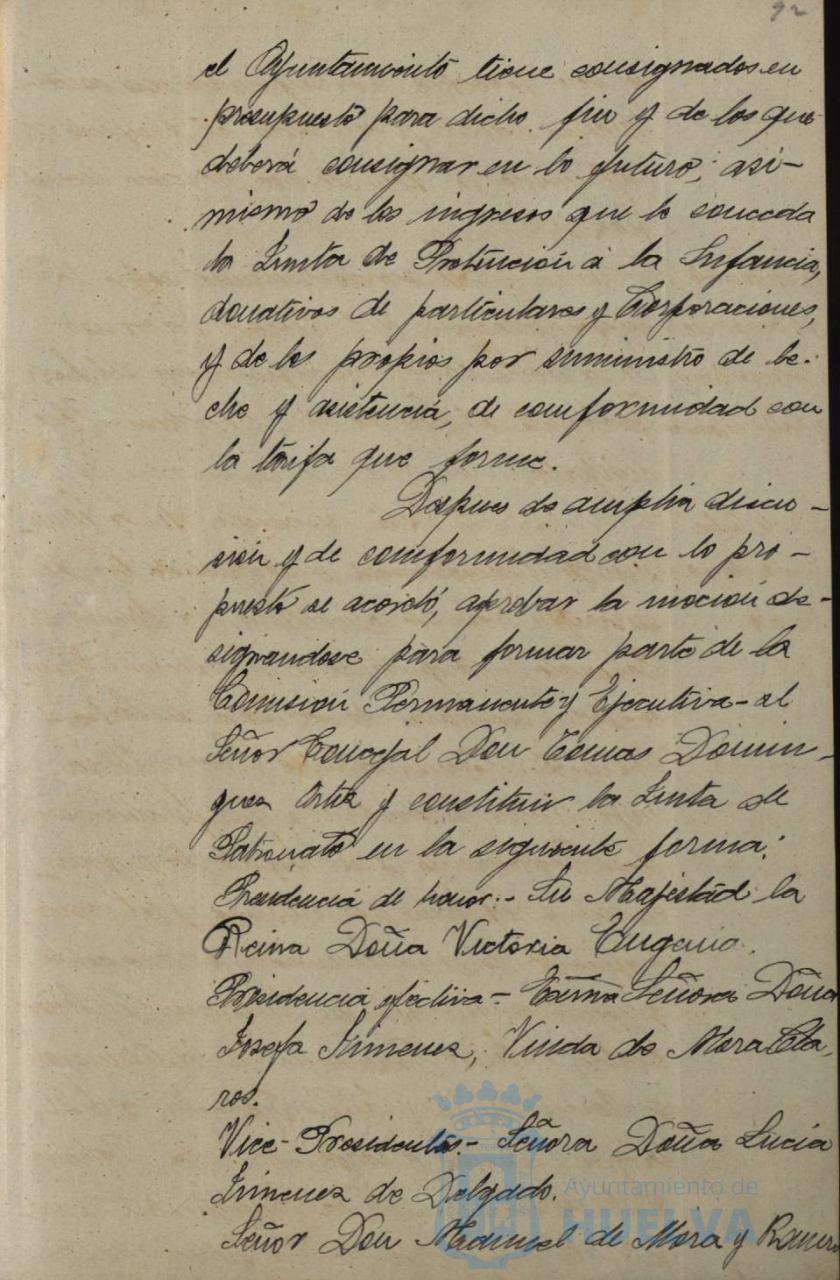 92
el Ayuntamiento tiene consignados en
presupuesto para dicho fin y de los que
deberá consignar en lo futuro; asi-
mismo de los ingresos que le conceda
la Junta de Protección á la Infancia,
donativos de particulares y Corporaciones,
y de los propios por suministro de le-
che y asistencia, de comformidad con
la tarifa que forme.
Despues de amplia discu-
sión y de comformidad con lo pro-
puesto se acordó, aprobar la moción de-
signandose para formar parte de la
Comisión Permanente y Ejecutiva - al
Señor Concejal Don Tomas Domin-
guez Ortiz y constituir la Junta de
Patronato en la siguiente forma:
Presidencia de honor.- Su Majestad la
Reina Doña Victoria Eugenia.
Presidencia efectiva - Excma Señora Doña
Josefa Jimenez, Viuda de Mora Cla-
ros.
Vice-Presidentes.- Señora Doña Lucia
Jimenez de Delgado.
Señor Don Manuel de Mora y Romero
Ayuntamiento de
HUELVA